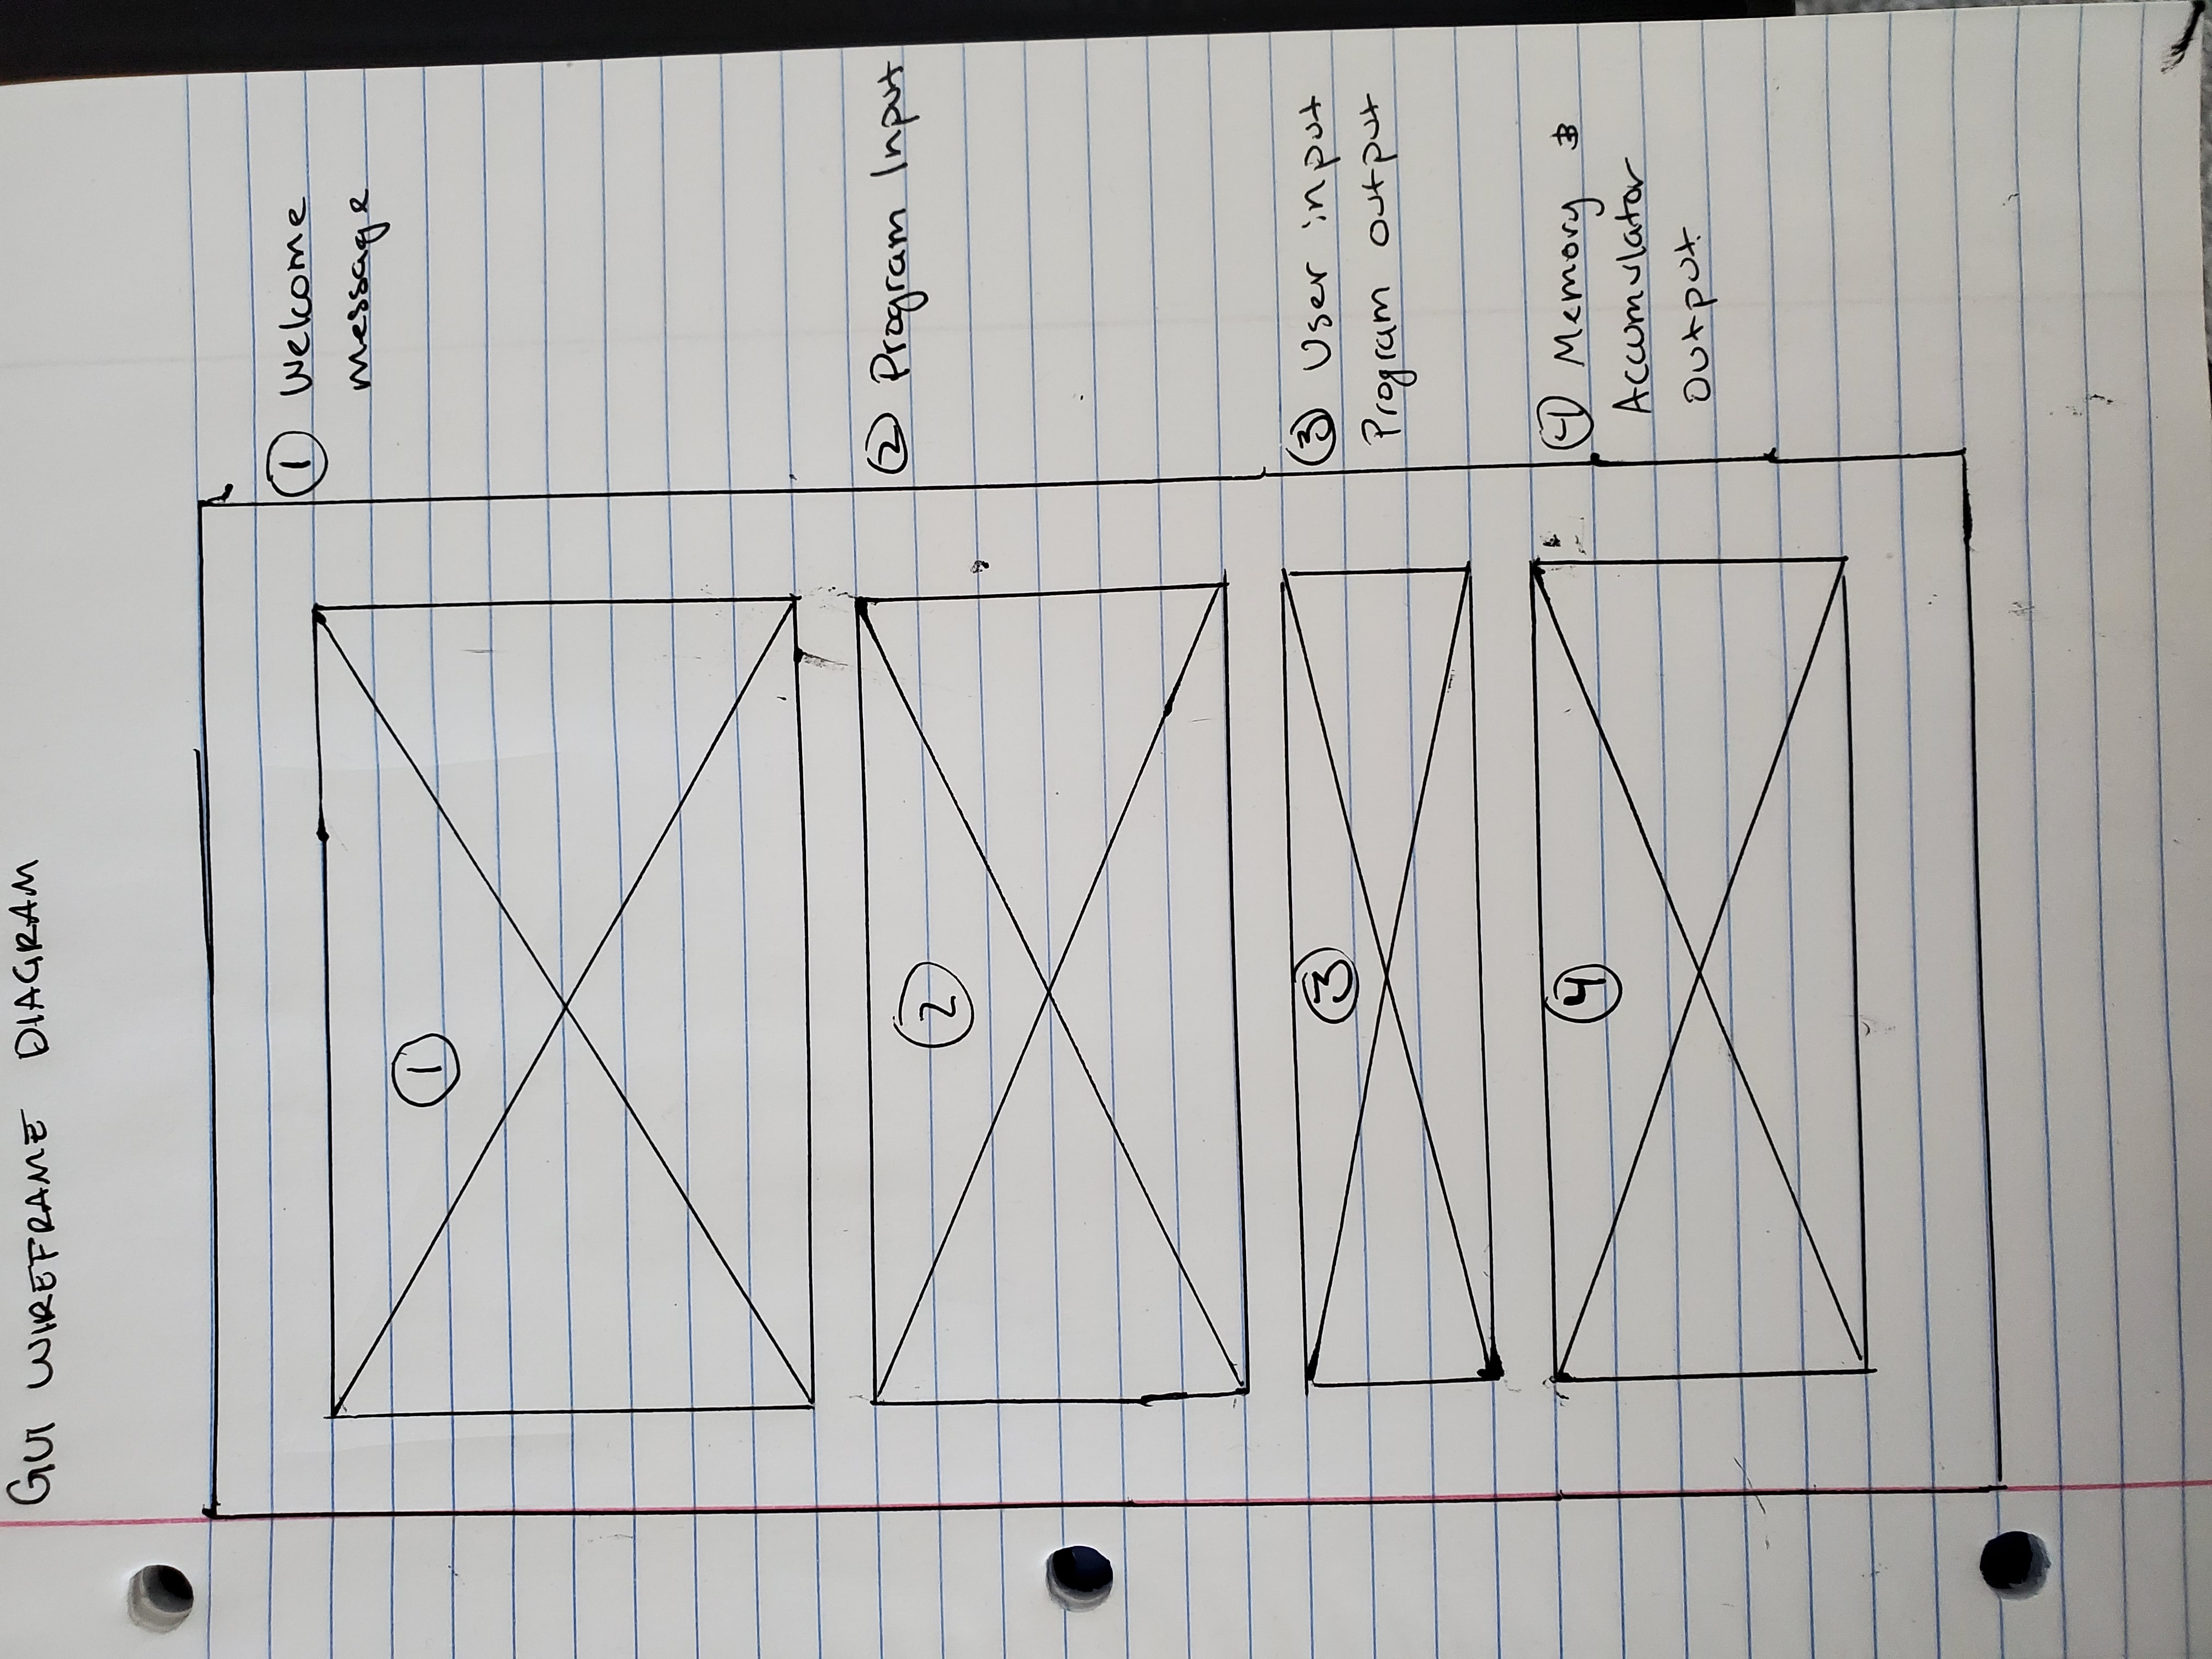 GUI WIREFRAME DIAGRAM
① Welcome
message
①
② Program Input
②
③ User input
Program output
③
④ Memory &
Accumulator
Output
④